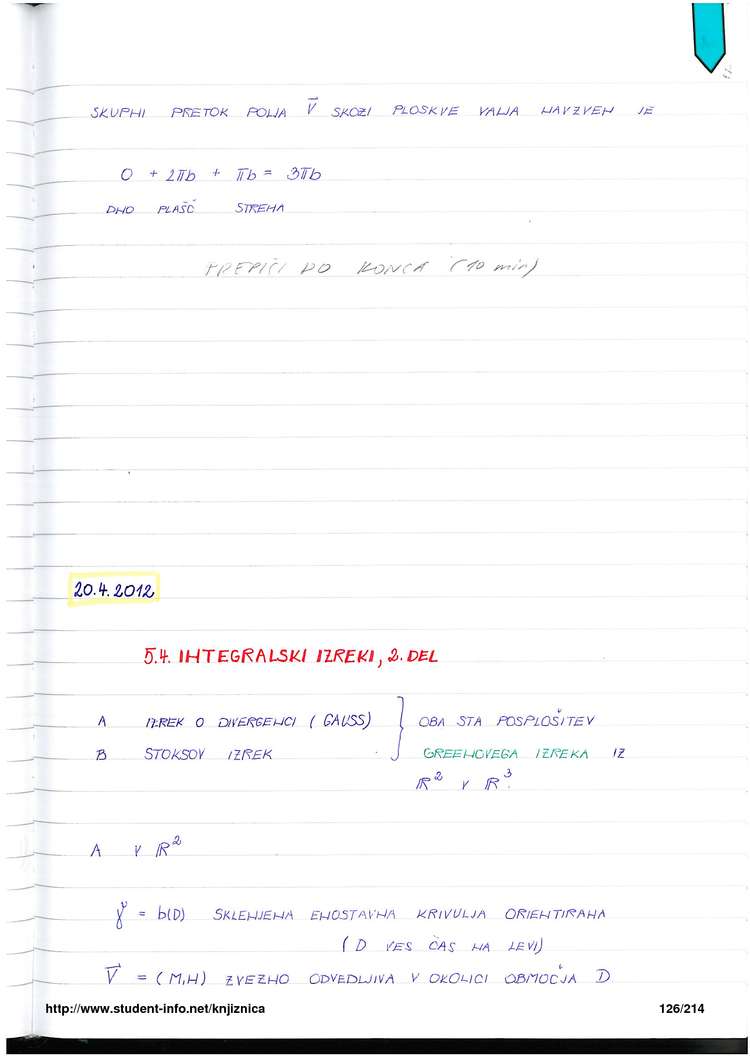 SKUPNI PRETOK POLJA V⃗ SKOZI PLOSKVE VALJA NAVZVEN JE
0 + 2πb + πb = 3πb
DNO PLAŠČ STREHA
PREPIŠI DO KONCA (10 min)
20.4.2012
5.4. INTEGRALSKI IZREKI, 2. DEL
A IZREK O DIVERGENCI (GAUSS) } OBA STA POSPLOŠITEV
B STOKSOV IZREK GREENOVEGA IZREKA IZ
ℝ² V ℝ³.
A V ℝ²
γ = b(D) SKLENJENA ENOSTAVNA KRIVULJA ORIENTIRANA
(D VES ČAS NA LEVI)
V⃗ = (M,N) ZVEZNO ODVEDLJIVA V OKOLICI OBMOČJA D
http://www.student-info.net/knjiznica 126/214